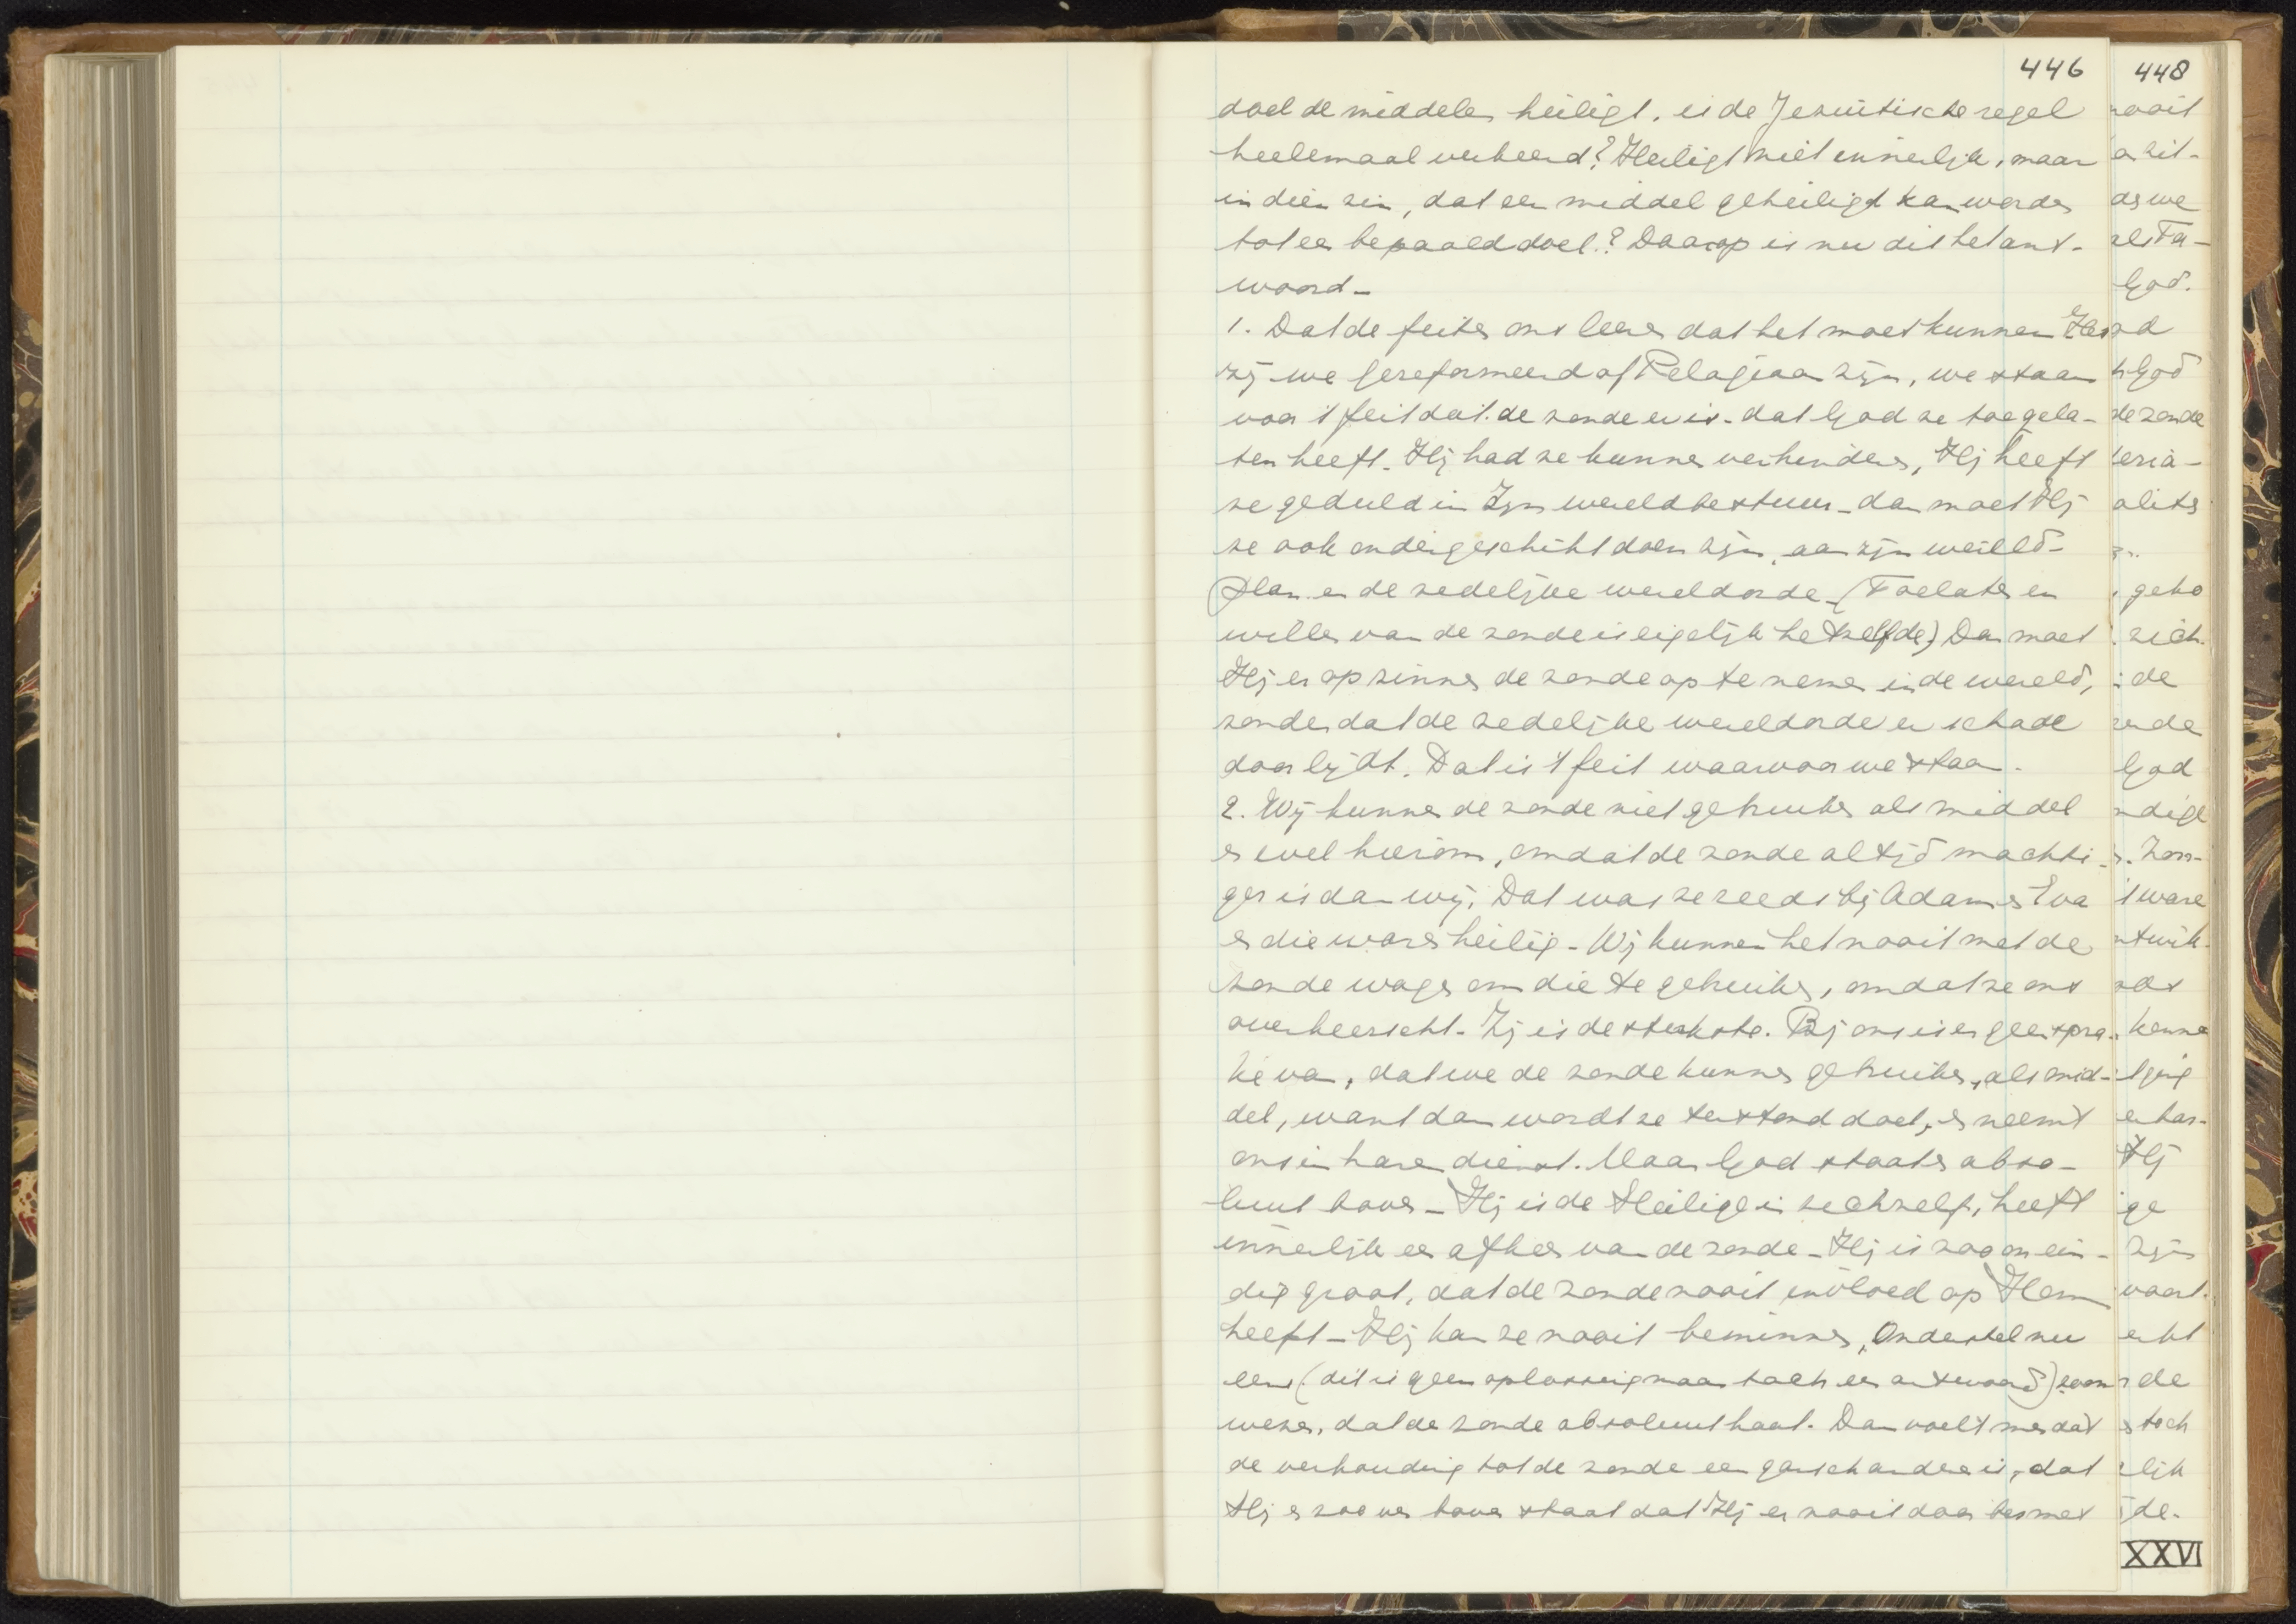 446
doel de middelen heiligt, is de Jezuïtische regel
heelemaal verkeerd? Heiligt niet innerlijk, maar
in dien zin, dat een middel geheiligd kan worden
tot een bepaald doel? Daarop is nu dit het ant-
woord -
1. Dat de feiten ons leeren dat het moet kunnen Het
zij we Gereformeerd of Pelagiaan zijn, we staan
voor 't feit dat de zonde er is - dat God ze toegela-
ten heeft - Hij had ze kunnen verhinderen, Hij heeft
ze geduld in Zijn wereldbestuur - dan moet Hij
ze ook ondergeschikt doen zijn, aan zijn wereld-
plan en de zedelijke wereldorde - (Toelaten en
willen van de zonde is eigelijk hetzelfde) Dan moet
Hij er op zinnen de zonde op te nemen in de wereld,
zonder dat de zedelijke wereldorde er schade
door lijdt. Dat is 't feit waarvoor we staan.
2. Wij kunnen de zonde niet gebruiken als middel
en wel hierom, omdat de zonde altijd machti-
ger is dan wij. Dat was ze reeds bij Adam en Eva
en die waren heilig - Wij kunnen het nooit met de
zonde wagen om die te gebruiken, omdat ze ons
overheerscht - Zij is de sterkste. Bij ons is er geen spra-
ke van, dat we de zonde kunnen gebruiken, als mid-
del, want dan wordt ze terstond doel, en neemt
ons in haren dienst. Maar God staat er abso-
luut boven - Hij is de Heilige in zichzelf, heeft
innerlijk een afkeer van de zonde - Hij is zoo onein-
dig groot, dat de zonde nooit invloed op Hem
heeft - Hij kan ze nooit beminnen, Onderstel nu
eens (dit is geen oplossing maar toch een antwoord) zoo'n
wezen, dat de zonde absoluut haat. Dan voelt men dat
de verhouding tot de zonde een gansch andere is, dat
Hij er zoo ver boven staat dat Hij er nooit door besmet
448
nooit
zit-
God.
God
de zonde
geho
zich
de
God
ware
kenne
Hij
ge
Zijn
de
toch
lijk
de.
XXVI